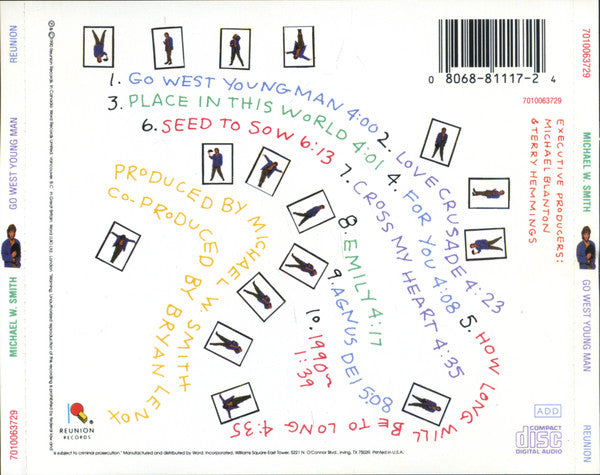 REUNION
GO WEST YOUNG MAN
MICHAEL W. SMITH
7010063729
1. GO WEST YOUNG MAN 4:00
3. PLACE IN THIS WORLD 4:01
6. SEED TO SOW 6:13
2. LOVE CRUSADE 4:23
4. FOR YOU 4:08
7. CROSS MY HEART 4:35
5. HOW LONG WILL BE TO LONG 4:35
8. EMILY 4:17
9. AGNUS DEI 5:08
10. 1990
1:39
PRODUCED BY MICHAEL W. SMITH
CO-PRODUCED BY BRYAN LENOX
0 8068-81117-2 4
7010063729
EXECUTIVE PRODUCERS:
MICHAEL BLANTON
& TERRY HEMMINGS
REUNION
RECORDS
ADD
COMPACT
disc
DIGITAL AUDIO
is subject to criminal prosecution." Manufactured and distributed by Word, Incorporated. Williams Square East Tower, 5221 N. O'Connor Blvd., Irving, TX 75039. Printed in U.S.A.
7010063729
MICHAEL W. SMITH
GO WEST YOUNG MAN
REUNION